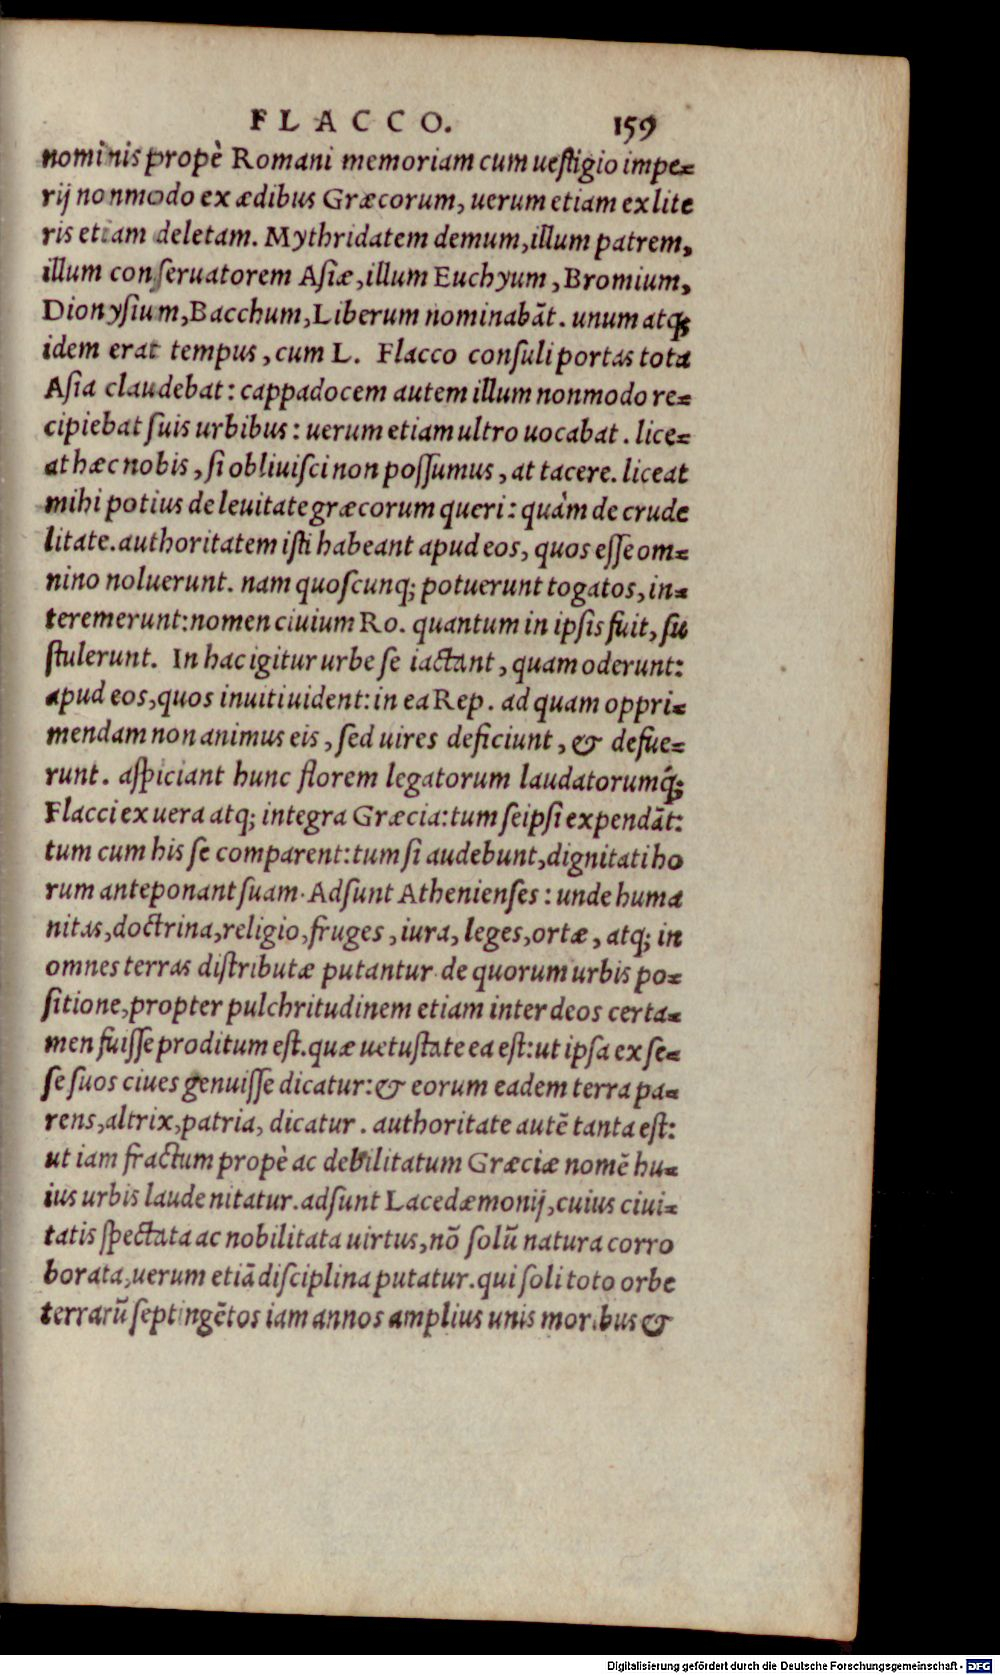 FLACCO. 159
nominis propè Romani memoriam cum ueſtigio impe=
rij nonmodo ex ædibus Græcorum, uerum etiam ex lite
ris etiam deletam. Mythridatem demum, illum patrem,
illum conſeruatorem Aſiæ, illum Euchyum, Bromium,
Dionyſium, Bacchum, Liberum nominabāt. unum atq;
idem erat tempus, cum L. Flacco conſuli portas tota
Aſia claudebat: cappadocem autem illum nonmodo re=
cipiebat ſuis urbibus: uerum etiam ultro uocabat. lice=
at hæc nobis, ſi obliuiſci non poſſumus, at tacere. liceat
mihi potius de leuitate græcorum queri: quàm de crude
litate. authoritatem iſti habeant apud eos, quos eſſe om=
nino noluerunt. nam quoſcunq; potuerunt togatos, in=
teremerunt: nomen ciuium Ro. quantum in ipſis fuit, ſu
ſtulerunt. In hac igitur urbe ſe iactant, quam oderunt:
apud eos, quos inuiti uident: in ea Rep. ad quam oppri=
mendam non animus eis, ſed uires deficiunt, & defue=
runt. aſpiciant hunc florem legatorum laudatorumq́;
Flacci ex uera atq; integra Græcia: tum ſeipſi expendāt:
tum cum his ſe comparent: tum ſi audebunt, dignitati ho
rum anteponant ſuam. Adſunt Athenienſes: unde huma
nitas, doctrina, religio, fruges, iura, leges, ortæ, atq; in
omnes terras diſtributæ putantur. de quorum urbis po=
ſitione, propter pulchritudinem etiam inter deos certa=
men fuiſſe proditum eſt. quæ uetuſtate ea eſt: ut ipſa ex ſe=
ſe ſuos ciues genuiſſe dicatur: & eorum eadem terra pa=
rens, altrix, patria, dicatur. authoritate autē tanta eſt:
ut iam fractum propè ac debilitatum Græciæ nomē hu=
ius urbis laude nitatur. adſunt Lacedæmonij, cuius ciui=
tatis ſpectata ac nobilitata uirtus, nō ſolū natura corro
borata, uerum etiā diſciplina putatur. qui ſoli toto orbe
terrarū ſeptingētos iam annos amplius unis moribus &
Digitalisierung gefördert durch die Deutsche Forschungsgemeinschaft - DFG